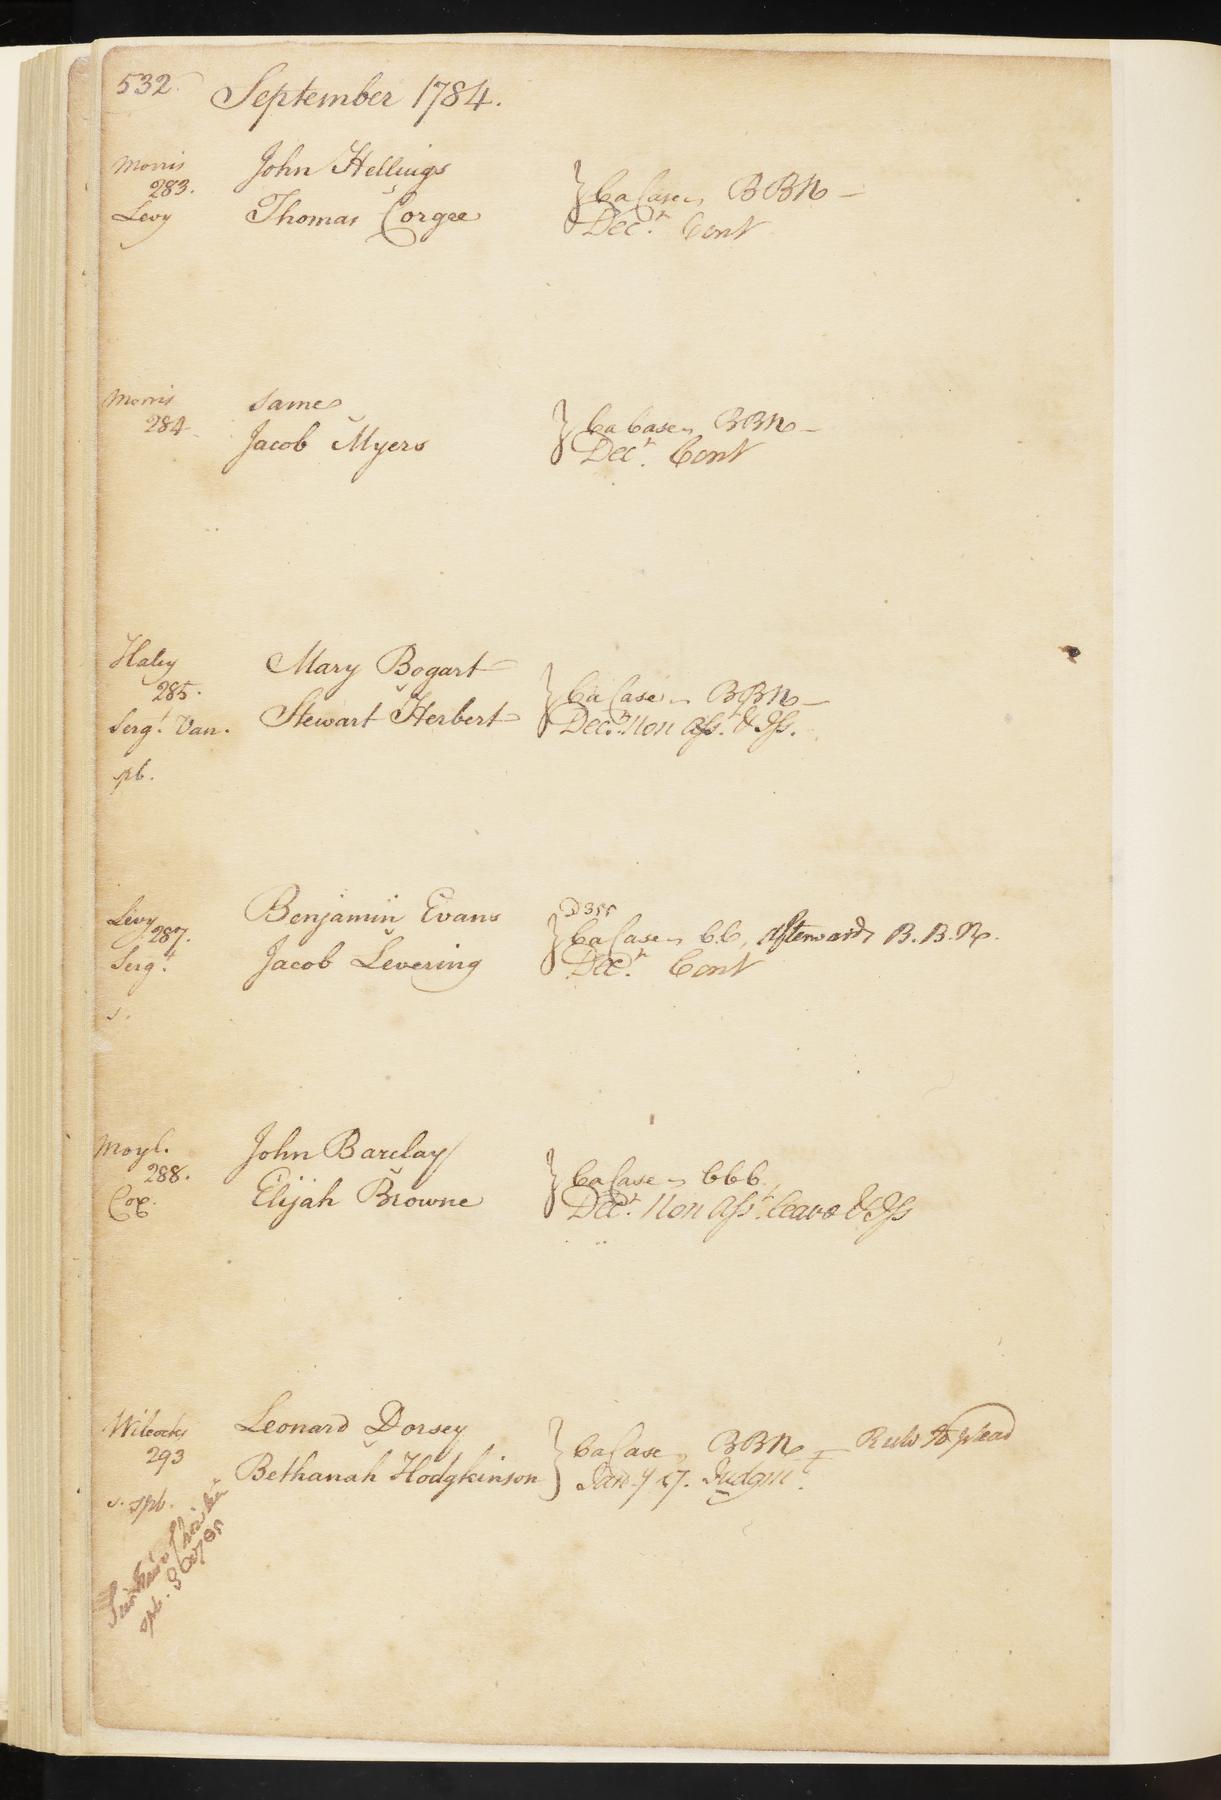 532. September 1784.
Morris
283.
Levy
John Hellings
v
Thomas Corgee
Ca Case BBN
Decr. Cont
Morris
284
same
v
Jacob Myers
Ca Case BBN
Decr. Cont
Haley
285.
Sergt. Van.
pb.
Mary Bogart
v
Stewart Herbert
Ca Case BBN
Decr. Non Asst. & Iss.
Levy
287.
Sergt.
s.
Benjamin Evans
v
Jacob Levering
Ca Case CC, Afterwards B.B.N.
Decr. Cont
Moyl.
288.
Cox.
John Barclay
v
Elijah Browne
Ca Case CCC
Decr. Non Asst. leave & Iss
Wilcocks
293
s. spb.
Leonard Dorsey
v
Bethanah Hodgkinson
Ca Case BBN Rule to plead
Jany 17. Judgmt.